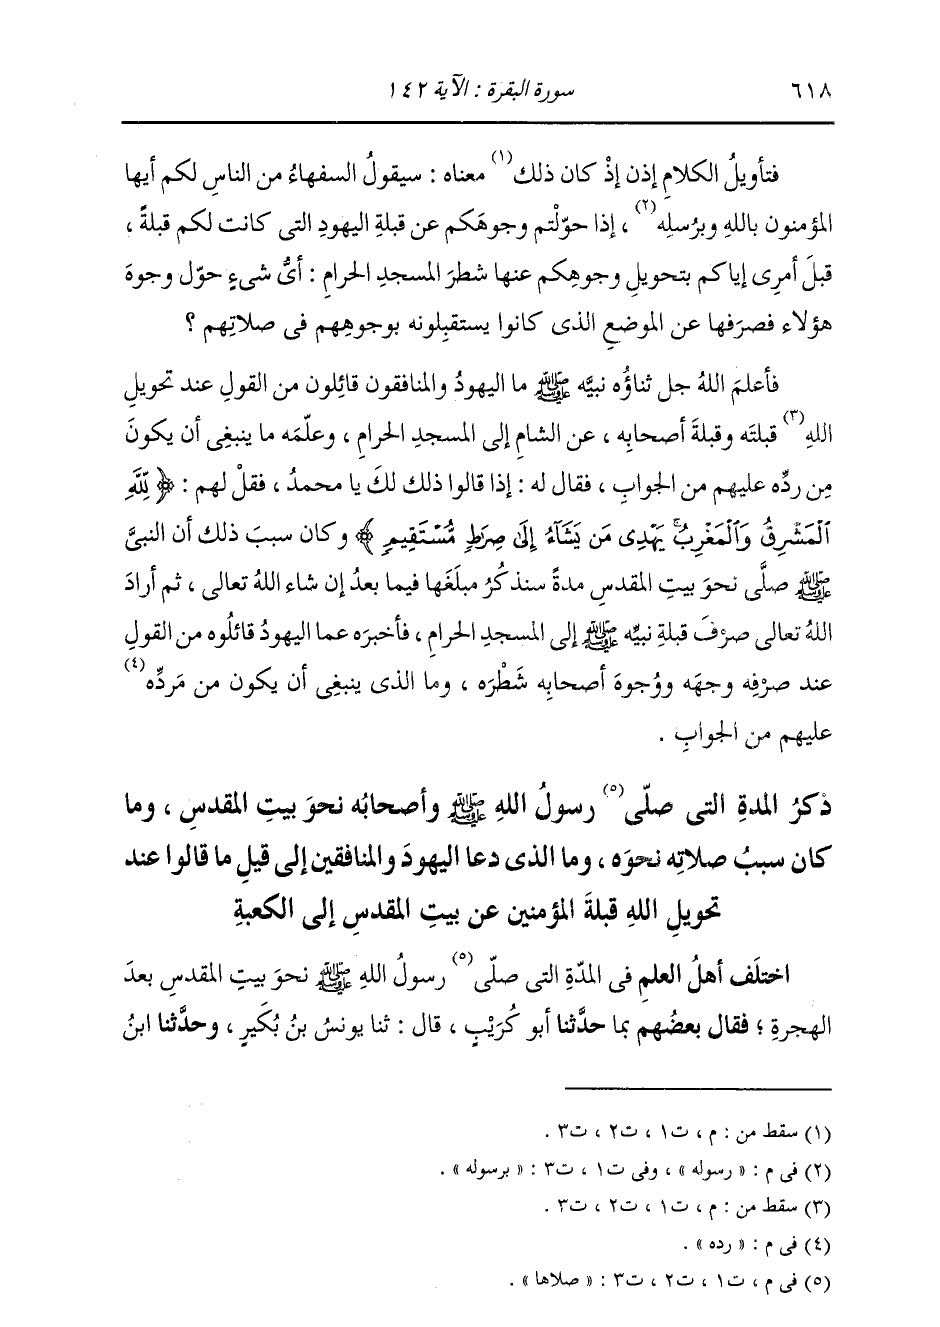 ٦١٨ سورة البقرة : الآية ١٤٢
فتأويلُ الكلامِ إذن إذْ كان ذلك(١) معناه : سيقولُ السفهاءُ من الناسِ لكم أيها
المؤمنون باللهِ وبرُسلِه(٢) ، إذا حوّلْتم وجوهَكم عن قبلةِ اليهودِ التى كانت لكم قبلةً ،
قبلَ أمرِى إياكم بتحويلِ وجوهِكم عنها شطرَ المسجدِ الحرامِ : أىُّ شىءٍ حوّل وجوهَ
هؤلاء فصرَفها عن الموضعِ الذى كانوا يستقبِلونه بوجوهِهم فى صلاتِهم ؟
فأعلمَ اللهُ جل ثناؤُه نبيَّه ﷺ ما اليهودُ والمنافقون قائِلون من القولِ عند تحويلِ
اللهِ(٣) قبلتَه وقبلةَ أصحابِه ، عن الشامِ إلى المسجدِ الحرامِ ، وعلّمه ما ينبغِى أن يكونَ
مِن ردِّه عليهم من الجوابِ ، فقال له : إذا قالوا ذلك لكَ يا محمدُ ، فقلْ لهم : ﴿ لِلَّهِ
ٱلْمَشْرِقُ وَٱلْمَغْرِبُۚ يَهْدِى مَن يَشَآءُ إِلَىٰ صِرَٰطٍ مُّسْتَقِيمٍ ﴾ وكان سببَ ذلك أن النبىَّ
ﷺ صلَّى نحوَ بيتِ المقدسِ مدةً سنذكُرُ مبلَغَها فيما بعدُ إن شاء اللهُ تعالى ، ثم أرادَ
اللهُ تعالى صرْفَ قبلةِ نبيِّه ﷺ إلى المسجدِ الحرامِ ، فأخبرَه عما اليهودُ قائلُوه من القولِ
عند صرْفِه وجهَه ووُجوهَ أصحابِه شَطْرَه ، وما الذى ينبغِى أن يكون من مَردِّه(٤)
عليهم من الجوابِ .
ذكرُ المدةِ التى صلّى(٥) رسولُ اللهِ ﷺ وأصحابُه نحوَ بيتِ المقدسِ ، وما
كان سببُ صلاتِه نحوَه ، وما الذى دعا اليهودَ والمنافقين إلى قيلِ ما قالوا عند
تحويلِ اللهِ قبلةَ المؤمنين عن بيتِ المقدسِ إلى الكعبةِ
اختلَف أهلُ العلمِ فى المدّةِ التى صلّى(٥) رسولُ اللهِ ﷺ نحوَ بيتِ المقدسِ بعدَ
الهجرةِ ؛ فقال بعضُهم بما حدَّثنا أبو كُرَيْبٍ ، قال : ثنا يونسُ بنُ بُكَيرٍ ، وحدَّثنا ابنُ
(١) سقط من : م ، ت١ ، ت٢ ، ت٣ .
(٢) فى م : « رسوله » ، وفى ت١ ، ت٣ : « برسوله » .
(٣) سقط من : م ، ت١ ، ت٢ ، ت٣ .
(٤) فى م : « رده » .
(٥) فى م ، ت١ ، ت٢ ، ت٣ : « صلاها » .